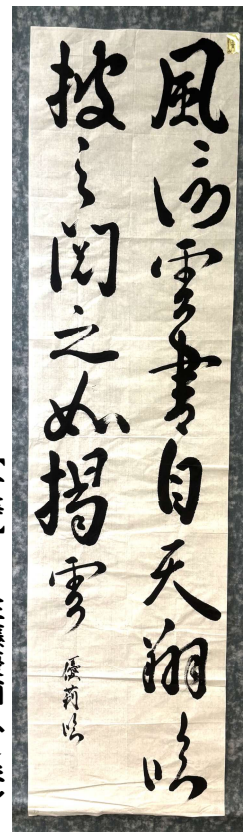 風信雲書自天翔臨
披之閲之如揭雲
優莉臨